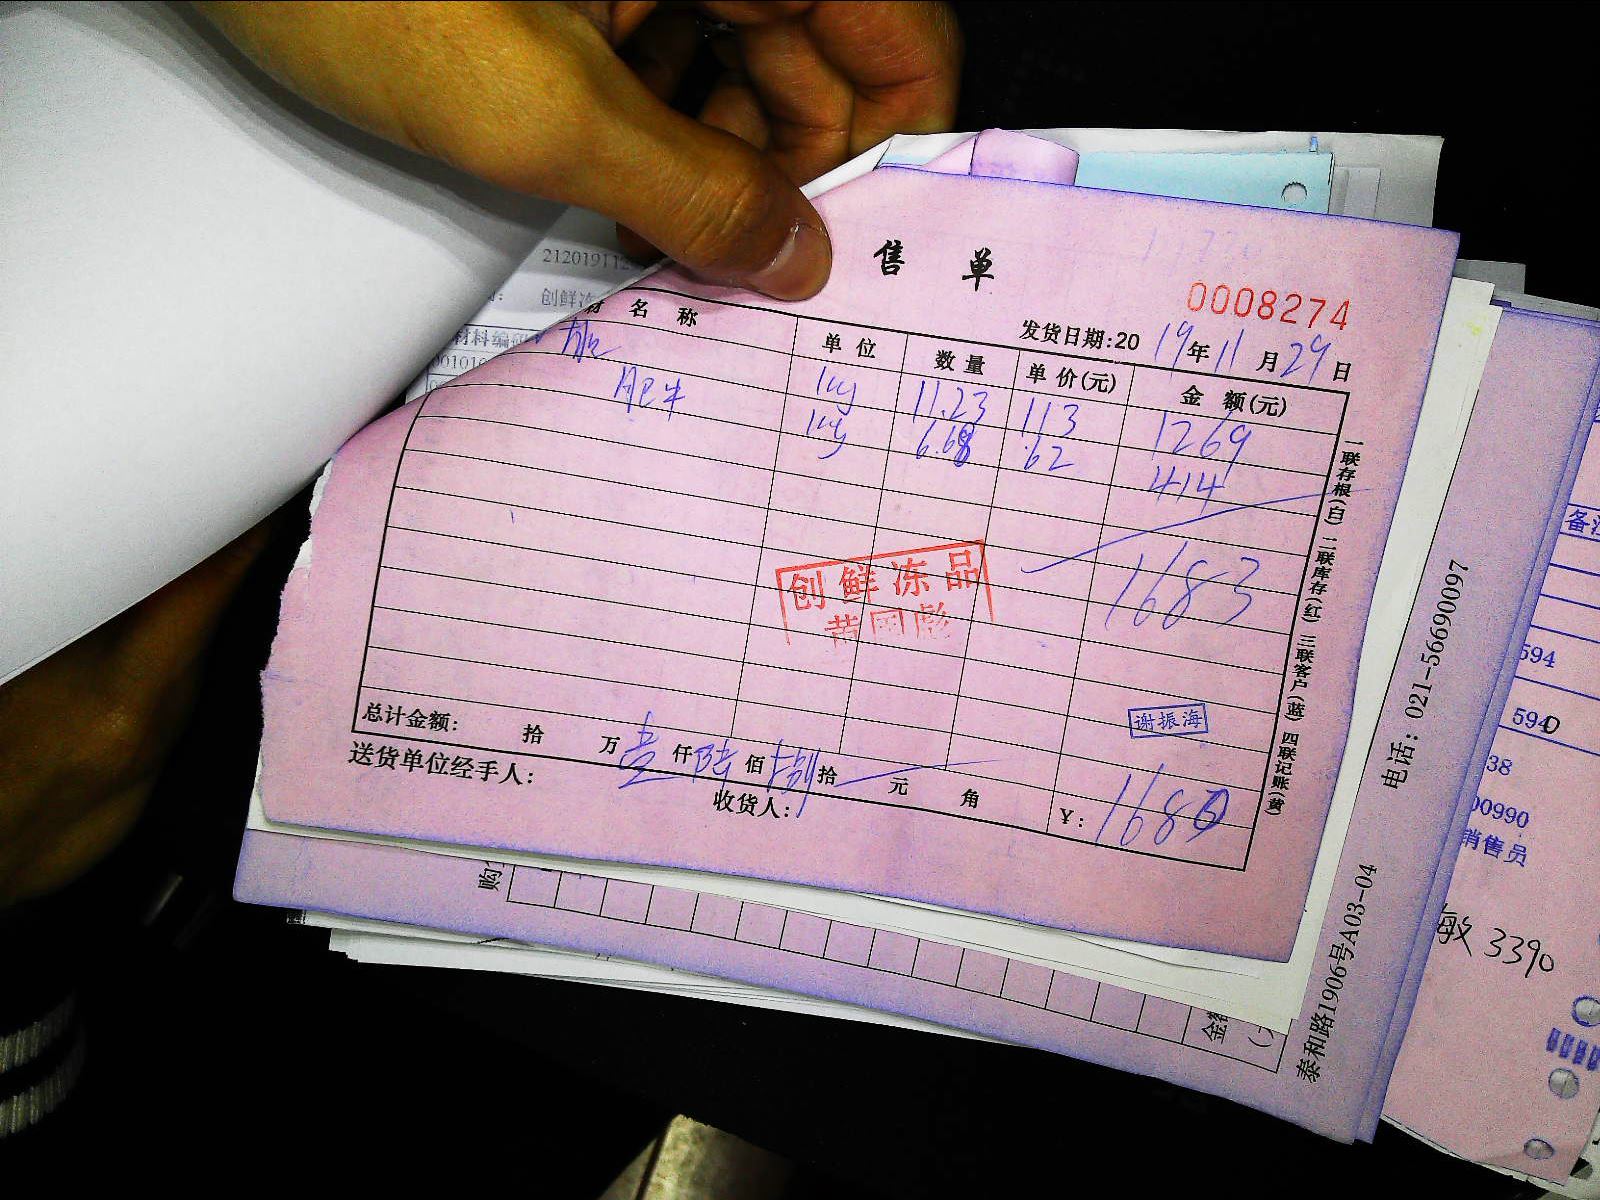 售 单
0008274
发货日期:2019年11月29日
名 称 单位 数量 单价(元) 金 额(元)
kg 11.23 113 1269
肥牛 kg 6.68 62 414
1683
创鲜冻品
谢振海
总计金额: 拾 万壹仟陆佰捌拾 元 角 ¥: 1680
送货单位经手人: 收货人:
一联存根(白) 二联库存(红) 三联客户(蓝) 四联记账(黄)
创鲜
材料编
购
金
电话: 021-56690097
泰和路1906号A03-04
594
5940
38
00990
销售员
敏 3390